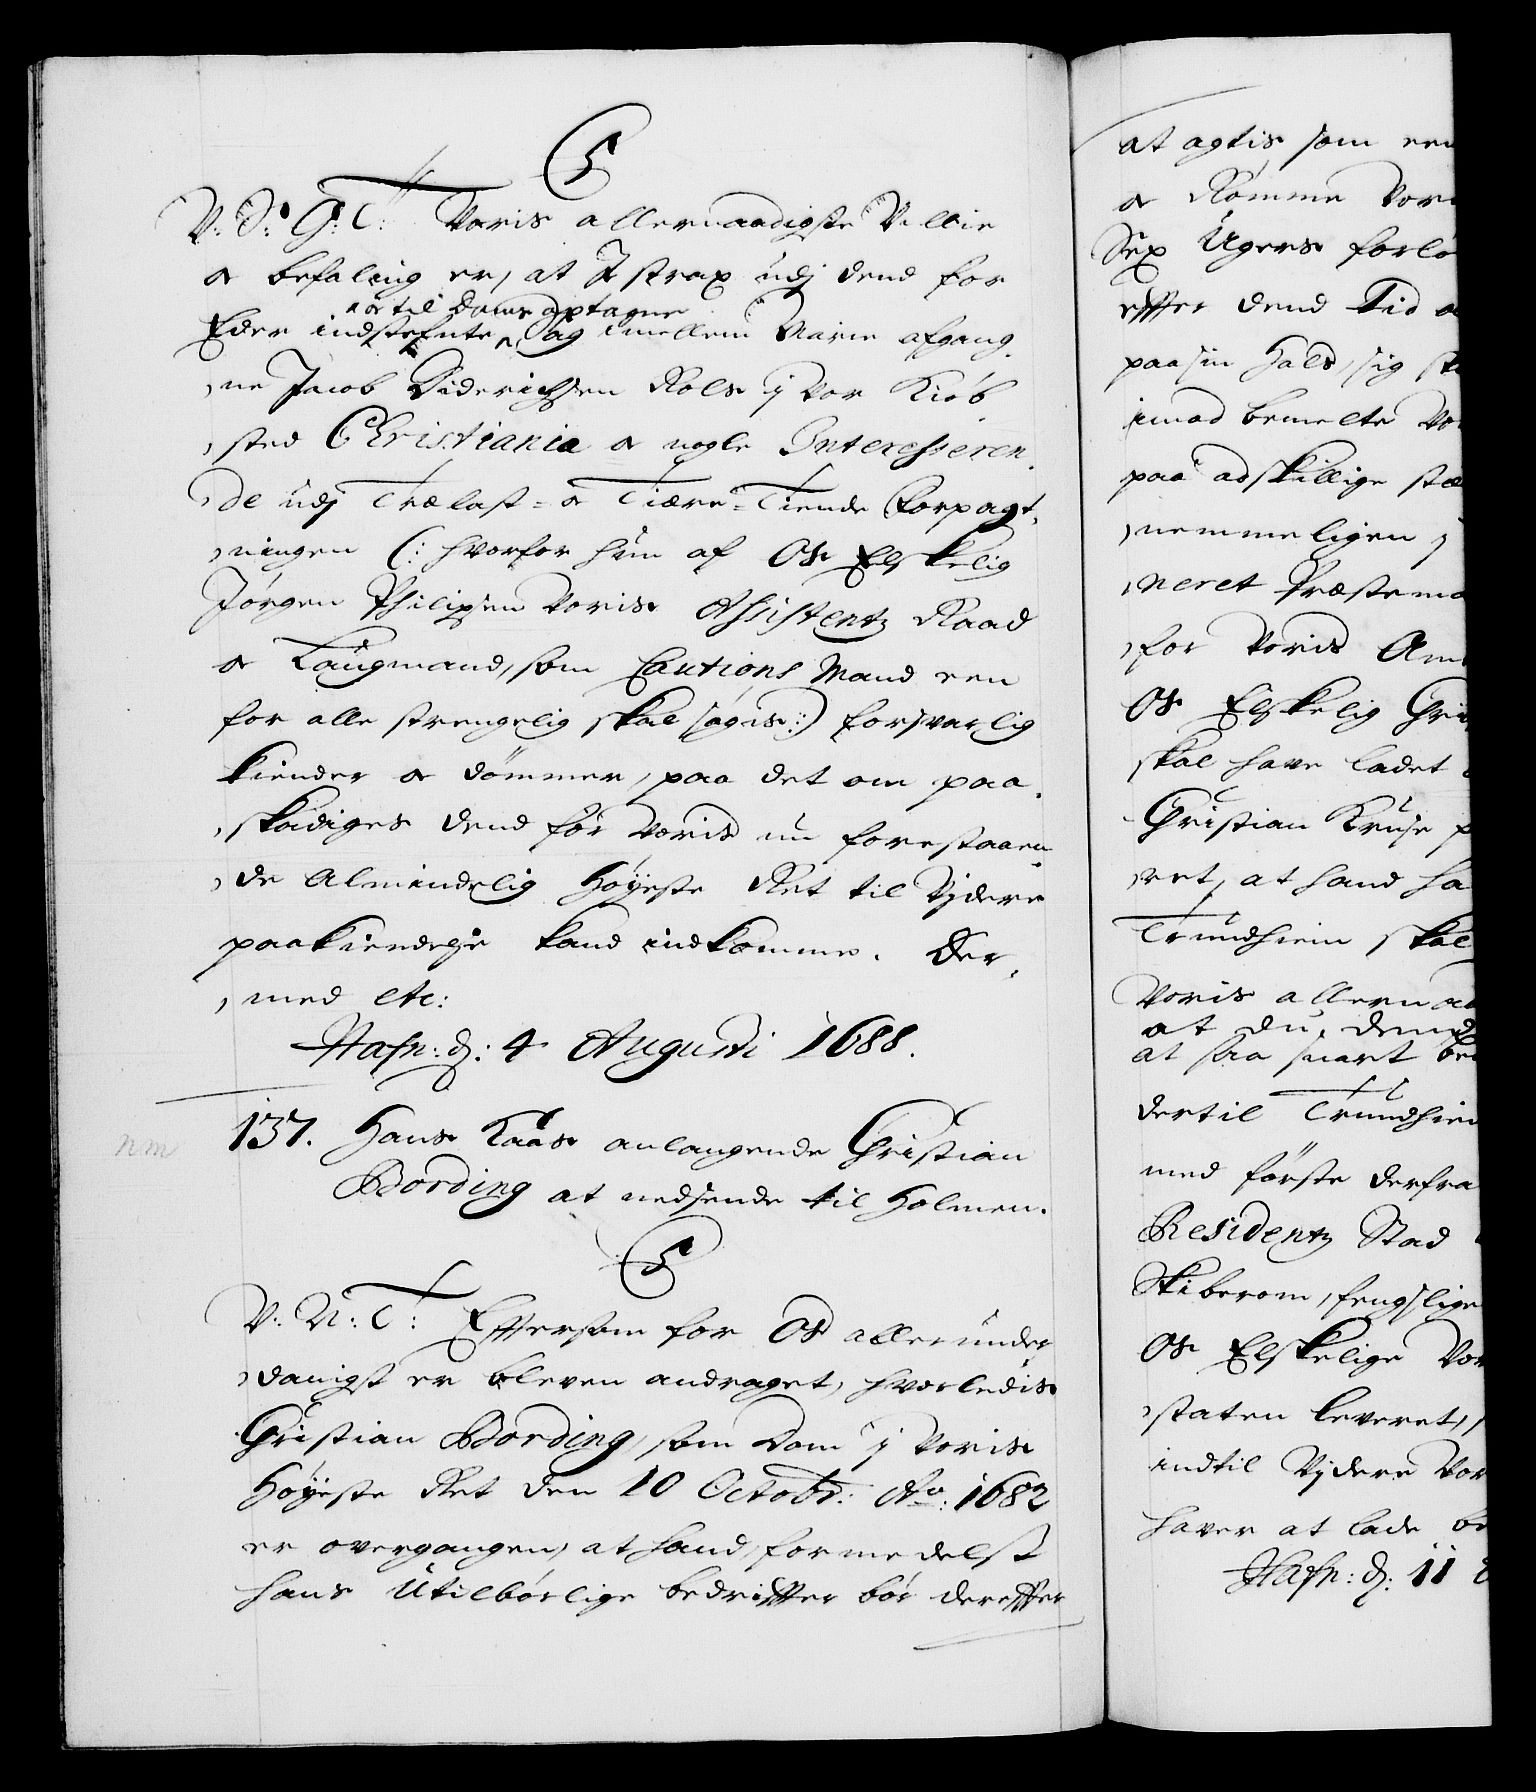 C5
V: S: G: T: Voris allernaadigste Villie
oc befaling er, at I strax udj dend for
Eder indstefnte, oc til doms optagne Sag imellem Marie afgang,
,ne Jacob Diderichsen Rols j vor Kiøb,
,sted Christiania oc nogle Interesseren,
,de udj Trælast- oc Tiære-Tiende Forpagt,
,ningen (: hvorfor hun af Os Elskelig
Jørgen Philipsen Voris Assistentz Raad
oc Laugmand, som Cautions Mand een
for alle strengelig skal søgis :) forsvarlig
kiender oc dømmer, paa det om paa,
,skadiges dend før Voris nu forestaaen,
,de Almindelig Høyeste Ret til Vjdere
paakiendelse kand indkomme. Der,
,med etc:
Hafn: d: 4 Augusti 1688.
nm
137. Hans Kaas anlangende Christian
Bording at nedsende til Holmen.
C5
V: N: T: Eftersom for Os allerunder
,danigst er bleven andraget, hvorledis
Christian Bording, som Dom j Voris
Høyeste Ret den 10 Octobr: Ao: 1682
er overgangen, at hand formedelst
hans Utilbørlige bedrifter bør derefter
at agtis som een
oc Rømme Vor
Sex Ugers forlø
efter dend Tid
paa sin Hals, sig
imod bemelte Vo
paa adskillige stæ
,nemmeligen j
,neret Præstema
,for Voris Am
Os Elskelig Chri
skal have ladet
Christian Kruse
,ret, at hand ha
Trundhiem skal
Voris allernaa
at du, dend
at saa snart be
dertil Trundhiem
med første derfra
Residentz Stad
Skiberom, fengslige
Os Elskelige Vor
,staten leveret,
indtil Vjdere Vor
haver at lade be
Hafn: d: 11